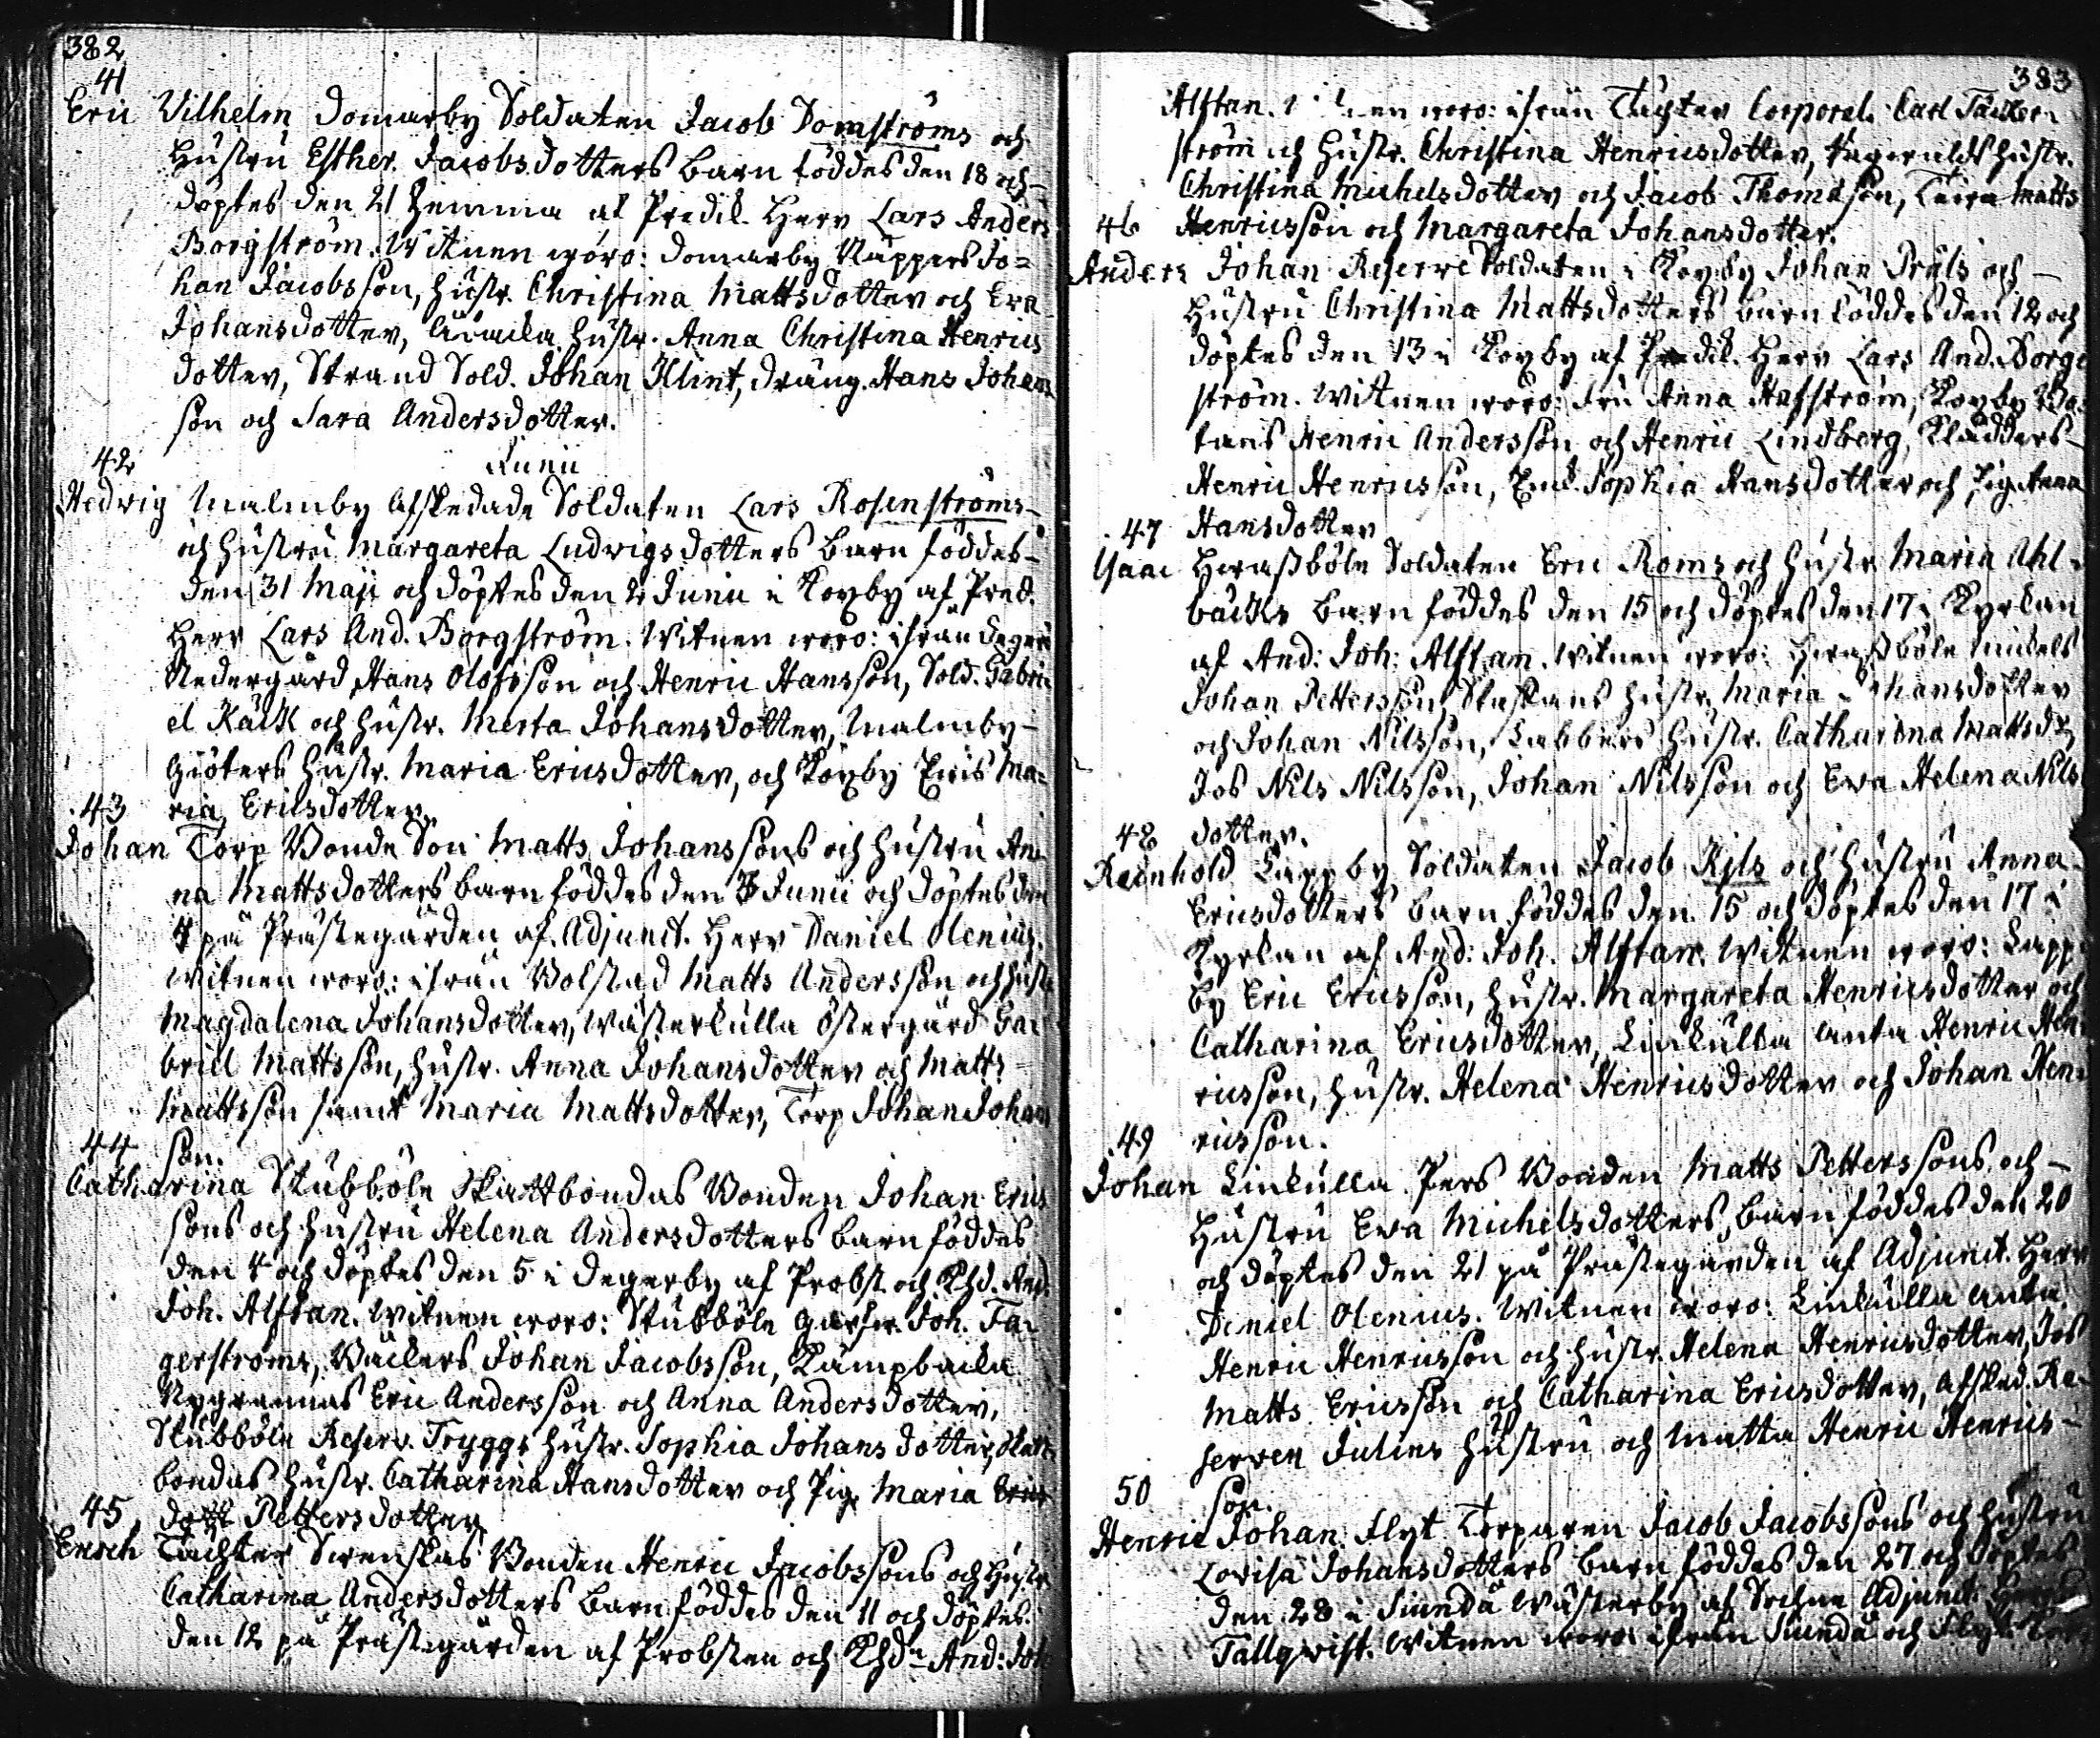 382
41
Eric Vilhelm Domarby Soldaten Jacob Domströms och
Hustru Esther Jacobsdotters barn föddes den 18 och
döptes den 21 hemma af Predik. Herr Lars Anders
Borgström. Witnen woro: Domarby Kuppers Jo-
han Jacobsson, hustr. Christina Mattsdotter och Eva
Johansdotter, hustr. Anna Christina Henrics
dotter, Strand Sold. Johan Klint, dräng. Hans Johans
son och Sara Andersdotter.
Junii
42
Hedvig Malmby Afskedade Soldaten Lars Rosenströms
och hustru Margareta Ludvigsdotters barn föddes
den 31 Maji och döptes den 2 Junii i Köxby af Pred.
Herr Lars And. Borgström. Witnen woro: ifrån Deger
Nedergård Hans Olofsson och Henric Hansson, Sold. Gabri
el Käck och hustr. Merta Johansdotter, Malmby
Giöters hustr. Maria Ericsdotter, och Köxby Ma-
ria Ericsdotter
43
Johan Torp Bonde Son Matts Johanssons och hustru An
na Mattsdotters barn föddes den 3 Junii och döptes den
4 på Prästegården af Adjunct. Herr Daniel Olenius.
Witnen woro: ifrån Bolstad Matts Andersson och hustr
Magdalena Johansdotter, Wästerkulla Östergård Ga-
briel Mattsson, hustr. Anna Johansdotter och Matts
Mattsson samt Maria Mattsdotter, Torp Johan Johans
son.
44
Catharina Stubböle Skattbondas Bonden Johan Erics
sons och hustru Helena Andersdotters barn föddes
den 4 och döptes den 5 i Degerby af Probst. och Khd. And.
Joh. Alftan. Witnen woro: Stubböle Joh. Fa-
gerströms, Backers Johan Jacobsson, Kämpbacka
Nygrannas Eric Andersson och Anna Andersdotter,
Stubböle Reserv. Tryggs hustr. Sophia Johansdotter, Skatt
bondas hustr. Catharina Hansdotter och Pig. Maria Erics
dott Pettersdotter
45
Enoch Täckter Swenskas Bonden Henric Jacobssons och hustr
Catharina Andersdotters barn föddes den 11 och döptes
den 12 på Prästegården af Probsten och Khdn And: Joh
383
Alftan. Witnen woro: ifrån Täckter Corporal Carl
ström och hustr. Christina Henricsdotter, hustr.
Christina Michelsdotter och Jacob Thomasson, Matts
Henricsson och Margareta Johansdotter.
46
Anders Johan Reserve Soldaten i Köxby Johan Präls och
Hustru Christina Mattsdotters barn föddes den 12 och
döptes den 13 i Köxby af Predik. Herr Lars And. Borg
ström. Witnen woro: Fru Anna Hafström, Köxby
Henric Andersson och Henric Lindberg, Klädders
Henric Henricsson, Sophia Hansdotter och Pig. Anna
Hansdotter
47
Ysaac Heraßböle Soldaten Eric Roms och hustr Maria Ahl-
bäcks barn föddes den 15 och döptes den 17 i Kyrkan
af And: Joh: Alftan. Witnen woro: Heraßböle Mickels
Johan Pettersson, hustr. Maria Johansdotter
och Johan Nilsson, Labbers hustr. Catharina Mattsdr
Jos Nils Nilsson, Johan Nilsson och Eva Helena Nils
dotter.
48
Reinhold Lappby Soldaten Jacob Kjls och hustru Anna
Ericsdotters barn föddes den 15 och döptes den 17 i
Kyrkan af And: Joh. Alftan. Witnen woro: Lapp-
by Eric Ericsson, hustr. Margareta Henricsdotter och
Catharina Ericsdotter, Linkulla Anta Henric Hen
ricsson, hustr. Helena Henricsdotter och Johan Hen
ricsson.
49
Johan Linkulla Pers Bonden Matts Petterssons och
Hustru Eva Michelsdotters barn föddes den 20
och döptes den 21 på Prästegården af Adjunct. Herr
Daniel Olenius. Witnen woro: Linkulla Anta
Henric Henricsson och hustr. Helena Henricsdotter, Jos
Matts Ericsson och Catharina Ericsdotter, Afsked. Re-
serven Julins hustru och Matta Henric Henrics
son.
50
Henric Johan Flyt Torparen Jacob Jacobssons och hustru
Lovisa Johansdotters barn föddes den 27 och döptes
den 28 i Siundå Wästerby af Sochne Adjunct. Herr
Tallqvist. Witnen woro: ifrån Siundå och Flyt